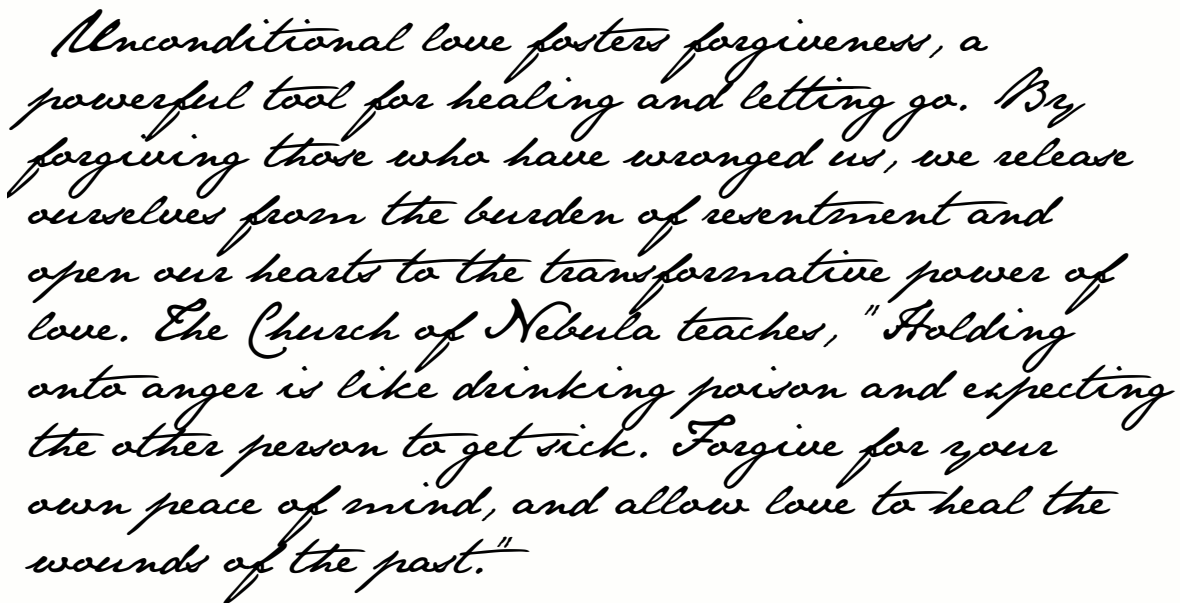 Unconditional love fosters forgiveness, a
powerful tool for healing and letting go. By
forgiving those who have wronged us, we release
ourselves from the burden of resentment and
open our hearts to the transformative power of
love. The Church of Nebula teaches, "Holding
onto anger is like drinking poison and expecting
the other person to get sick. Forgive for your
own peace of mind, and allow love to heal the
wounds of the past."